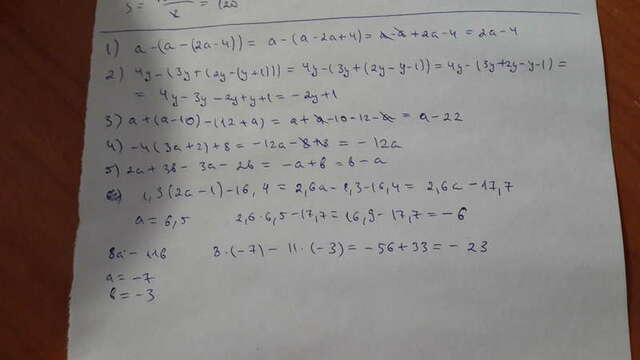 1) a-(a-(2a-4)) = a-(a-2a+4) = a-a+2a-4 = 2a-4
2) 4y-(3y+(2y-(y+1))) = 4y-(3y+(2y-y-1)) = 4y-(3y+2y-y-1) =
= 4y-3y-2y+y+1 = -2y+1
3) a+(a-10)-(12+a) = a+a-10-12-a = a-22
4) -4(3a+2)+8 = -12a-8+8 = -12a
5) 2a+3b-3a-2b = -a+b = b-a
6) 1,3(2a-1)-16,4 = 2,6a-1,3-16,4 = 2,6a-17,7
a=6,5 2,6·6,5-17,7 = 16,9-17,7 = -6
8a-11b 8·(-7)-11·(-3) = -56+33 = -23
a=-7
b=-3